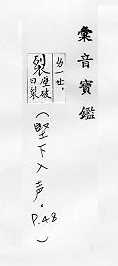 彙音寶鑑
ㄌ一ㄝ.
裂
破
曰裂
(堅下入声. P.48)